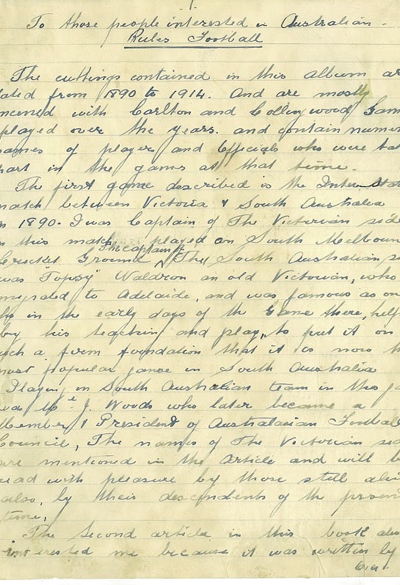 1.
To those people interested in Australian -
Rules Football
The cuttings contained in this album ar
dated from 1890 to 1914. And are mostly
ncerned with Carlton and Collingwood Gam
played over the years. and contain numer
names of player and Officials who were ta
part in the games at that time.
The first game described is the Inter State
match between Victoria & South Australia
n 1890. I was Captain of The Victorian side
n this match, played on South Melbourn
Cricket Ground. The Captain The South Australian s
was "Topsy" Waldron an old Victorian, who
migrated to Adelaide, and was famous as on
who in the early days of the Game there, help
by his teaching and play, to put it on
such a firm foundation that it is now th
most popular game in South Australia
Player in South Australian team in this ga
was J. Woods who later became a
Member & President of Australasian Football
Council, The names of The Victorian sid
are mentioned in the Article and will b
read with pleasure by those still aliv
also, by their descendents of the presen
time.
The Second article in this book also
interested me because it was written by